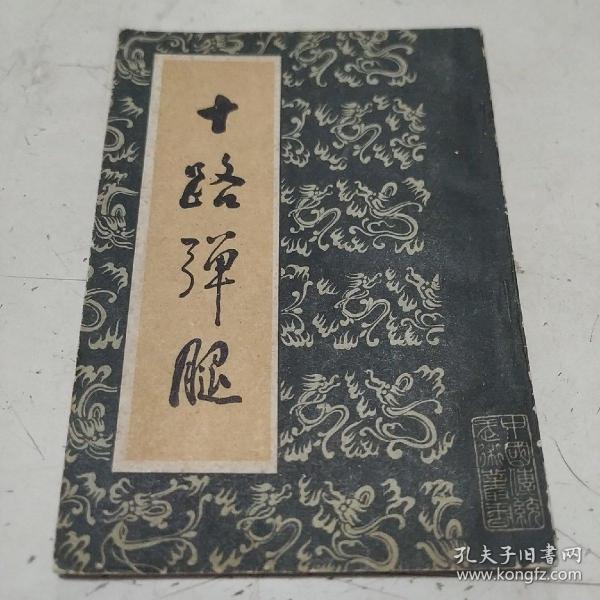 十路弹腿
中國傳統
武術叢書
孔夫子旧书网
www.kongfz.com